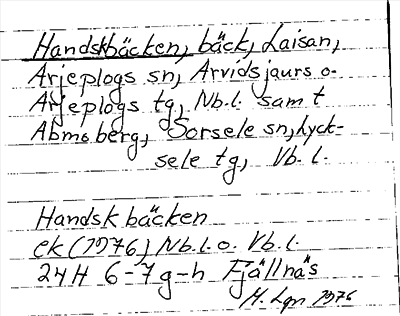 Handskbäcken, bäck, Laisan,
Arjeplogs sn, Arvidsjaurs o.
Arjeplogs tg, Nb.l. samt
Abmoberg, Sorsele sn, Lyck-
sele tg, Vb. l.
Handskbäcken
ek (1976) Nb.l. o. Vb.l.
24H 6-7g-h Fjällnäs
H. Lgn 1976